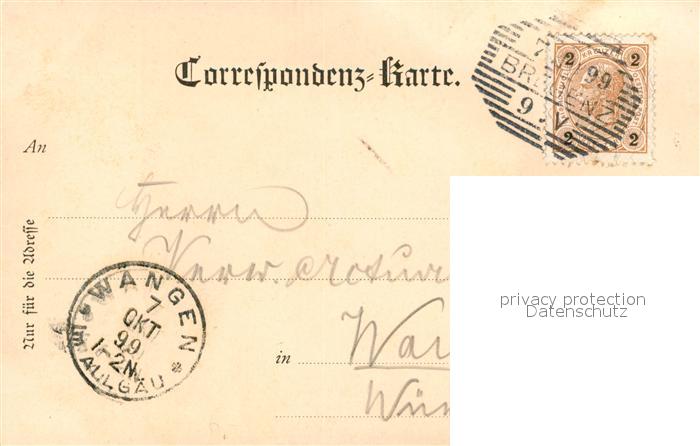 Correspondenz-Karte.
7
99
BREGENZ
9 V
2 KREUZER 2
2 2
An
Nur für die Adresse
Herrn
Verw. Actua
in Wan
Wür
WANGEN
7
OKT
99
1-2N.
ALLGÄU
privacy protection
Datenschutz